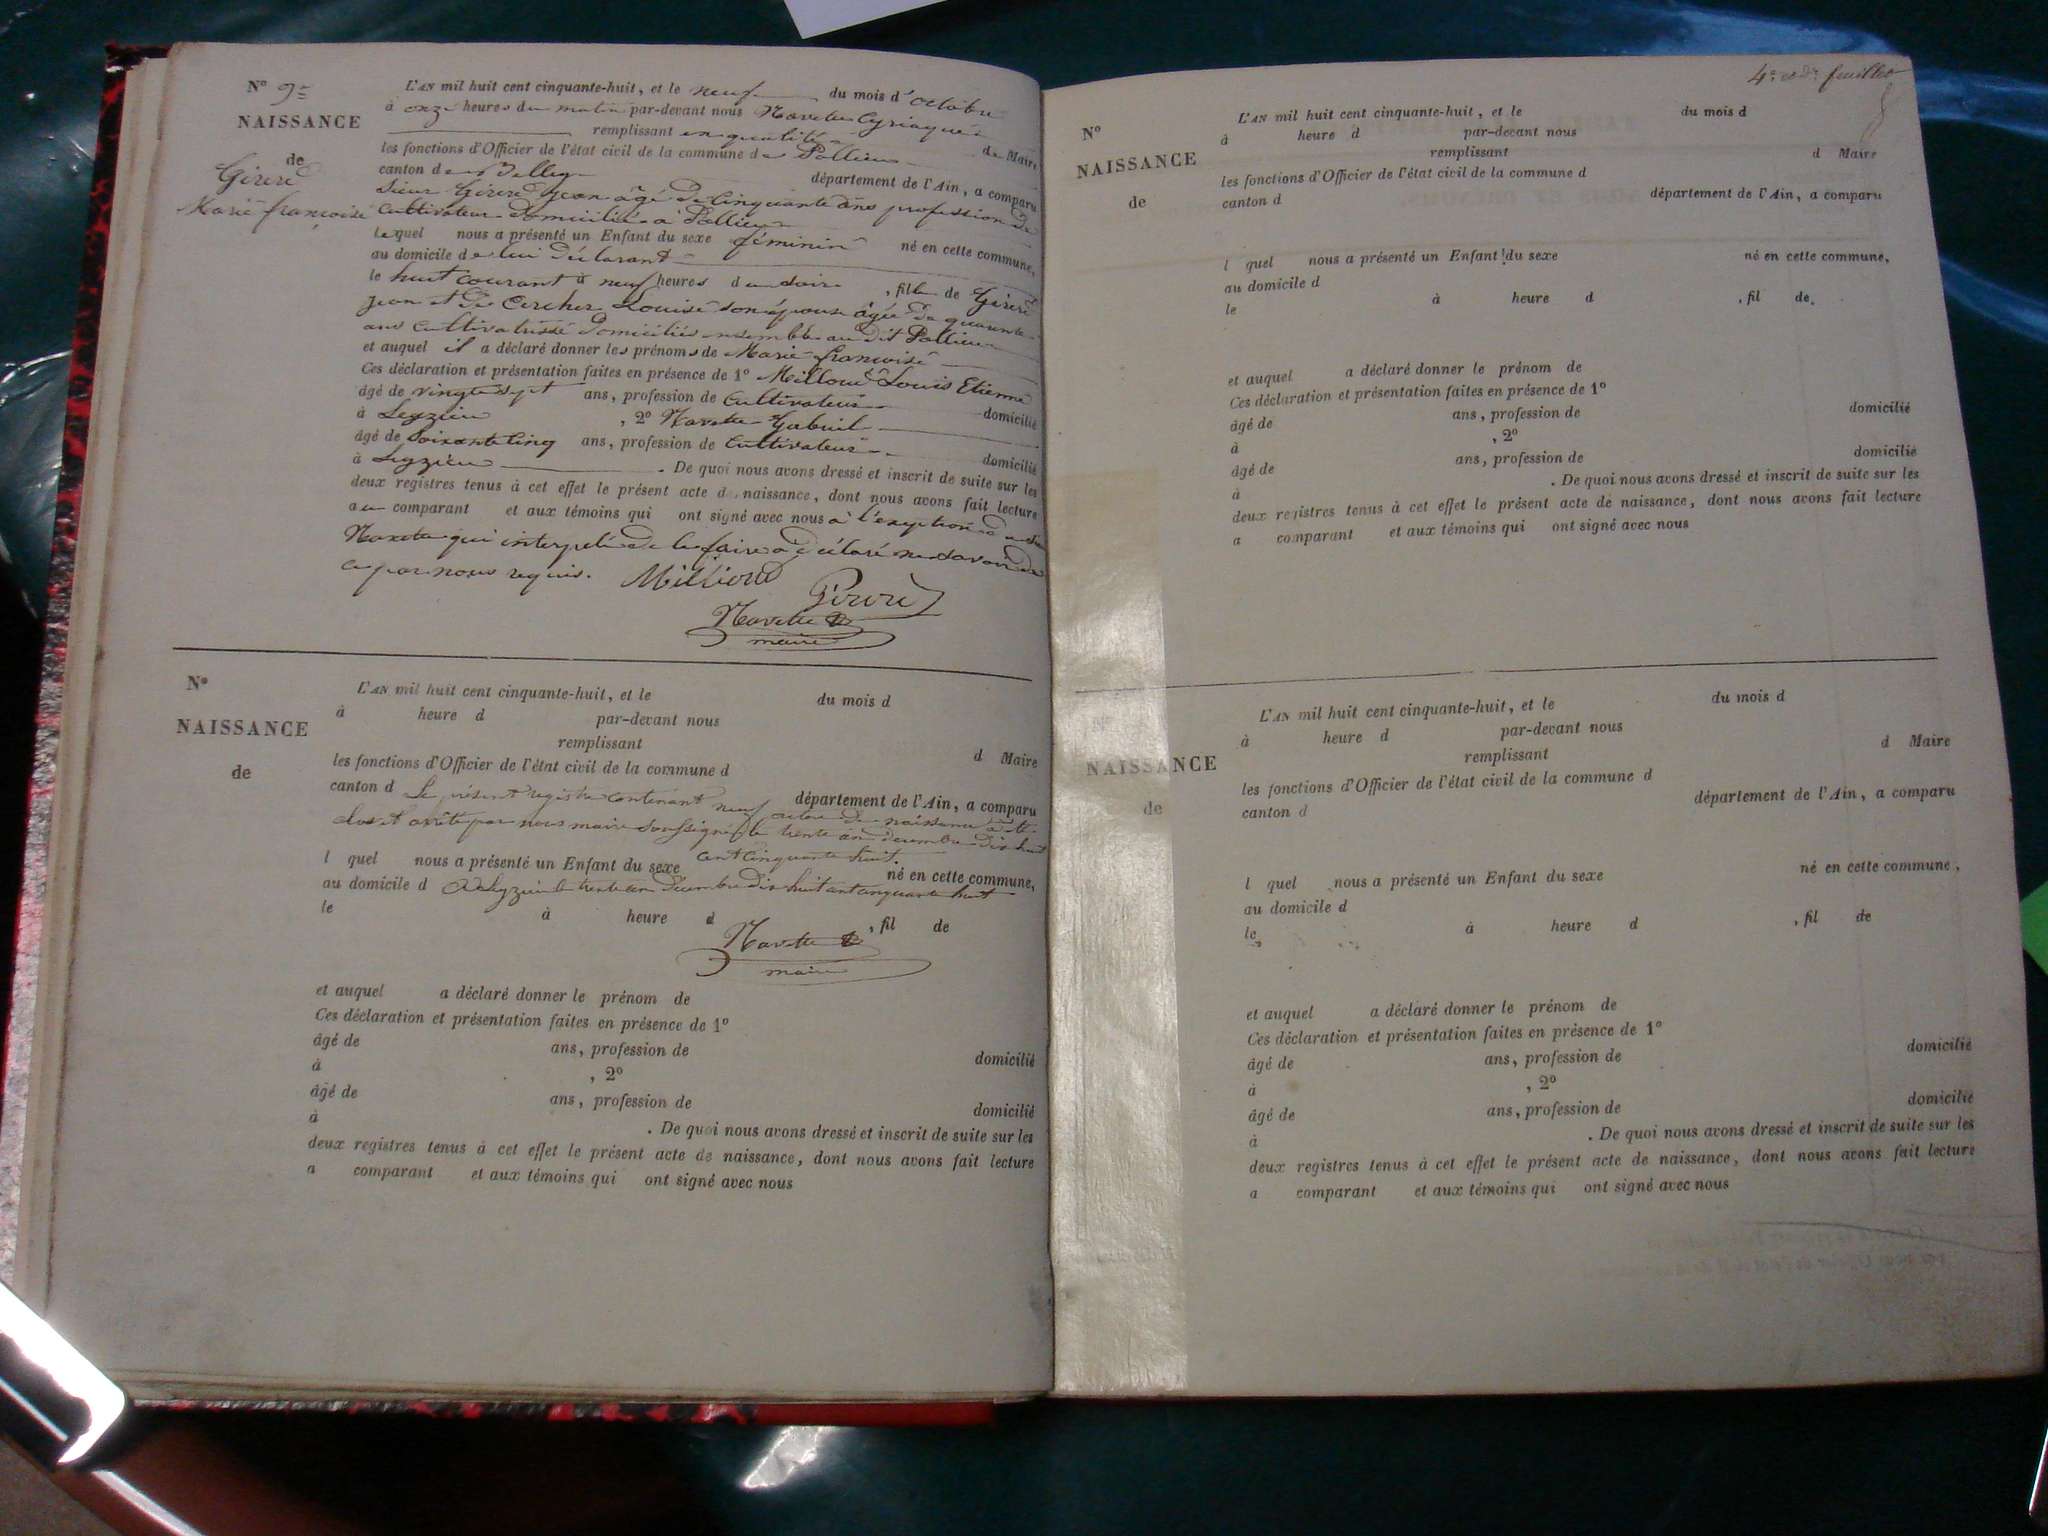 N° 9e
NAISSANCE
de
Girerd
Marie françoise
L'AN mil huit cent cinquante-huit, et le neuf du mois d'octobre
à onze heures du matin par-devant nous Navette Cyriaque
remplissant en qualité de Maire
les fonctions d'Officier de l'état civil de la commune de Pollieu
canton de Belley département de l'Ain, a comparu
Sieur Girerd Jean âgé de Cinquante ans profession de
cultivateur domicilié à Pollieu
lequel nous a présenté un Enfant du sexe féminin né en cette commune,
au domicile de lui déclarant
le huit courant à neuf heures du soir, fille de Girerd
Jean et de Cercher Louise son épouse âgée de quarante
ans cultivatrisse domiciliés ensemble au dit Pollieu
et auquel il a déclaré donner les prénoms de Marie françoise
Ces déclaration et présentation faites en présence de 1° Milloud Louis Etienne
âgé de vingt sept ans, profession de Cultivateur domicilié
à Leyzieu, 2° Navette Gabriel
âgé de soixante cinq ans, profession de Cultivateur domicilié
à Leyzieu. De quoi nous avons dressé et inscrit de suite sur les
deux registres tenus à cet effet le présent acte de naissance, dont nous avons fait lecture
au comparant et aux témoins qui ont signé avec nous à l'exception du
Navette qui interpelé de le faire a déclaré ne savoir de
ce par nous requis. Milloud
Girerd
Navette
maire
N°
NAISSANCE
de
L'AN mil huit cent cinquante-huit, et le du mois d
à heure d par-devant nous
remplissant d Maire
les fonctions d'Officier de l'état civil de la commune d
canton d département de l'Ain, a comparu
Le présent registre contenant neuf actes de naissance à été
clos et arrêté par nous maire soussigné le trente un decembre dix huit
cent cinquante huit.
l quel nous a présenté un Enfant du sexe né en cette commune,
au domicile d
A Leyzieu le trente un décembre dix huit cent cinquante huit
le à heure d, fil de
Navette
maire
et auquel a déclaré donner le prénom de
Ces déclaration et présentation faites en présence de 1°
âgé de ans, profession de domicilié
à, 2°
âgé de ans, profession de domicilié
à. De quoi nous avons dressé et inscrit de suite sur les
deux registres tenus à cet effet le présent acte de naissance, dont nous avons fait lecture
a comparant et aux témoins qui ont signé avec nous
4e et feuillet
N°
NAISSANCE
de
L'AN mil huit cent cinquante-huit, et le du mois d
à heure d par-devant nous
remplissant d Maire
les fonctions d'Officier de l'état civil de la commune d
canton d département de l'Ain, a comparu
l quel nous a présenté un Enfant du sexe né en cette commune,
au domicile d
le à heure d, fil de
et auquel a déclaré donner le prénom de
Ces déclaration et présentation faites en présence de 1°
âgé de ans, profession de domicilié
à, 2°
âgé de ans, profession de domicilié
à. De quoi nous avons dressé et inscrit de suite sur les
deux registres tenus à cet effet le présent acte de naissance, dont nous avons fait lecture
a comparant et aux témoins qui ont signé avec nous
N°
NAISSANCE
de
L'AN mil huit cent cinquante-huit, et le du mois d
à heure d par-devant nous
remplissant d Maire
les fonctions d'Officier de l'état civil de la commune d
canton d département de l'Ain, a comparu
l quel nous a présenté un Enfant du sexe né en cette commune,
au domicile d
le à heure d, fil de
et auquel a déclaré donner le prénom de
Ces déclaration et présentation faites en présence de 1°
âgé de ans, profession de domicilié
à, 2°
âgé de ans, profession de domicilié
à. De quoi nous avons dressé et inscrit de suite sur les
deux registres tenus à cet effet le présent acte de naissance, dont nous avons fait lecture
a comparant et aux témoins qui ont signé avec nous